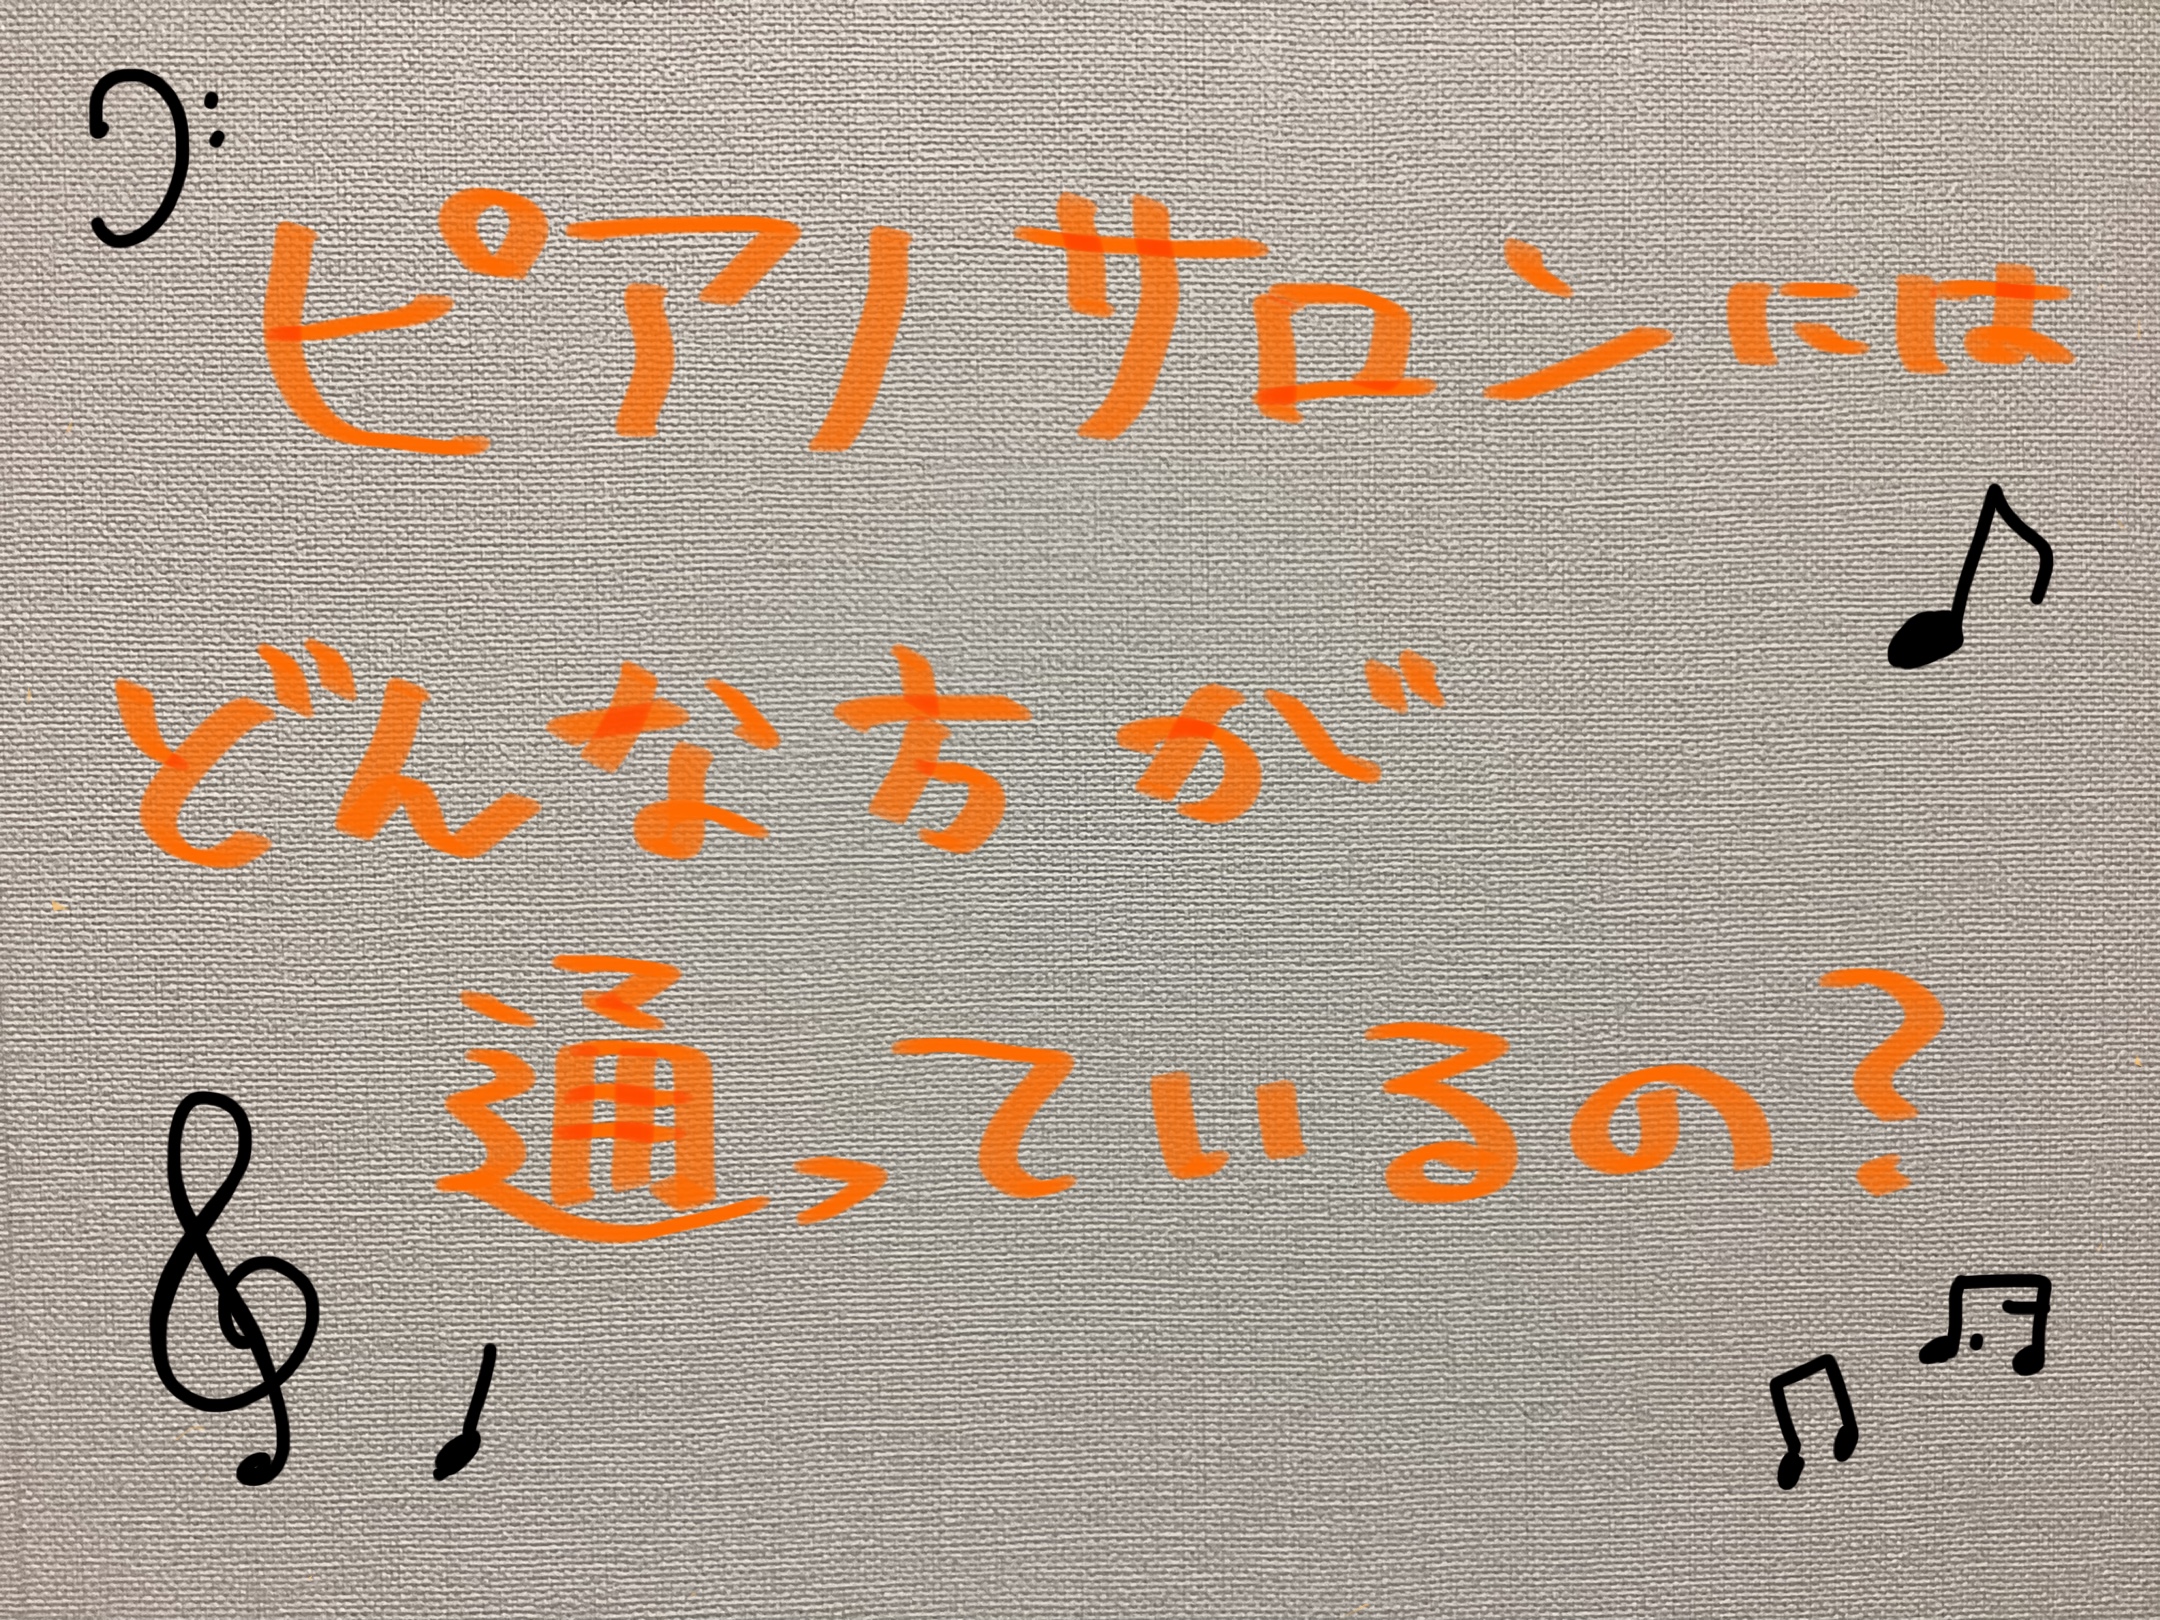 ピアノサロンには
どんな方が
通っているの?